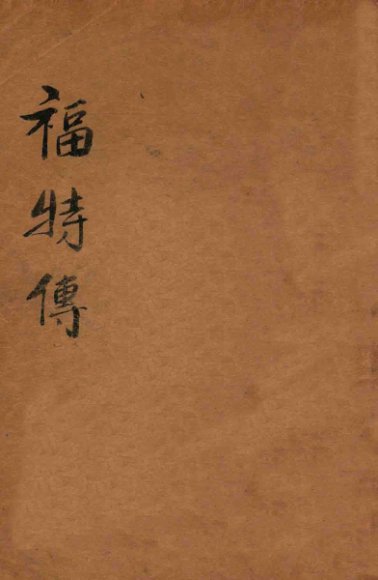 福特傳